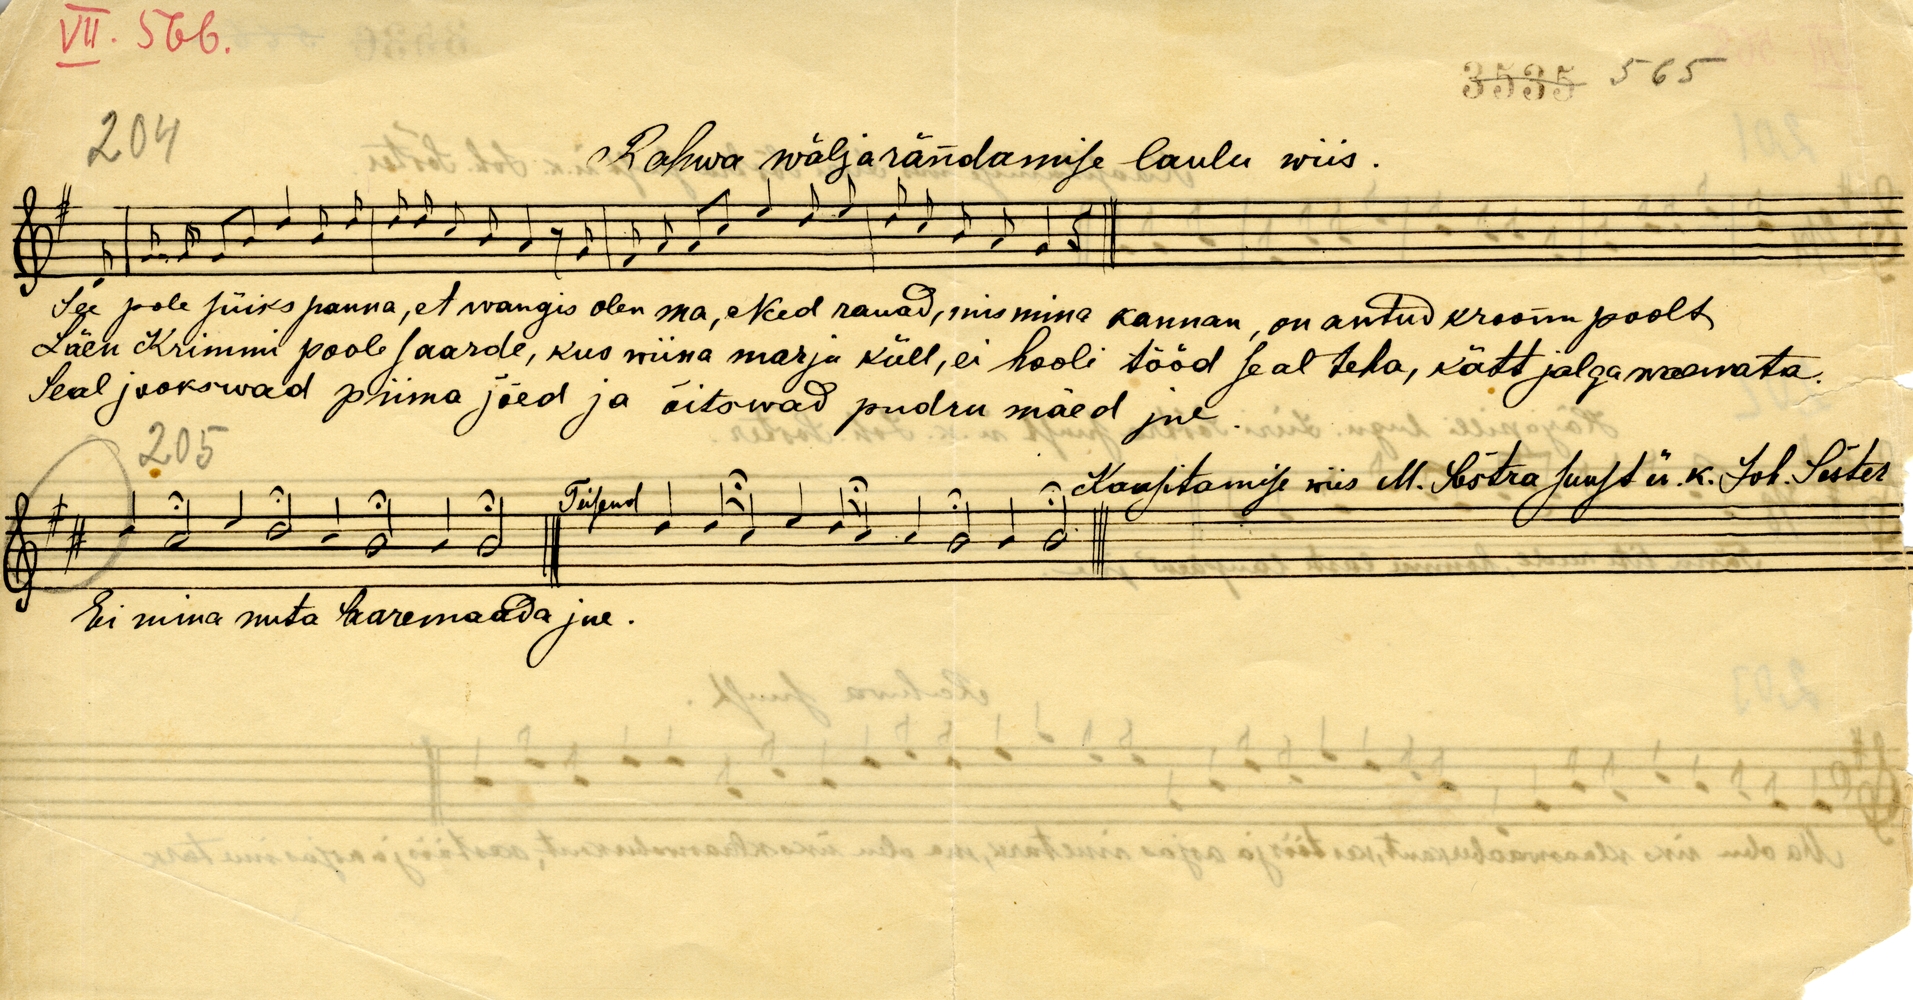 VII. 566.
3535 565
204
Rahwa wäljarändamise laulu wiis.
See pole süiks panna, et wangis olen ma, Need rauad, mis mina kannan, on antud kroonu poolt
Läen Krimmi poole saarde, kus wiina marju küll, ei hooli tööd seal teha, kätt jalga waewata.
Seal jookswad piima jõed ja õitswad pudru mäed jne.
205
Teisend
Kaupitamise wiis M. Sõstra suust ü. k. Joh. Sõster
Ei mina nuta Saaremaada jne.